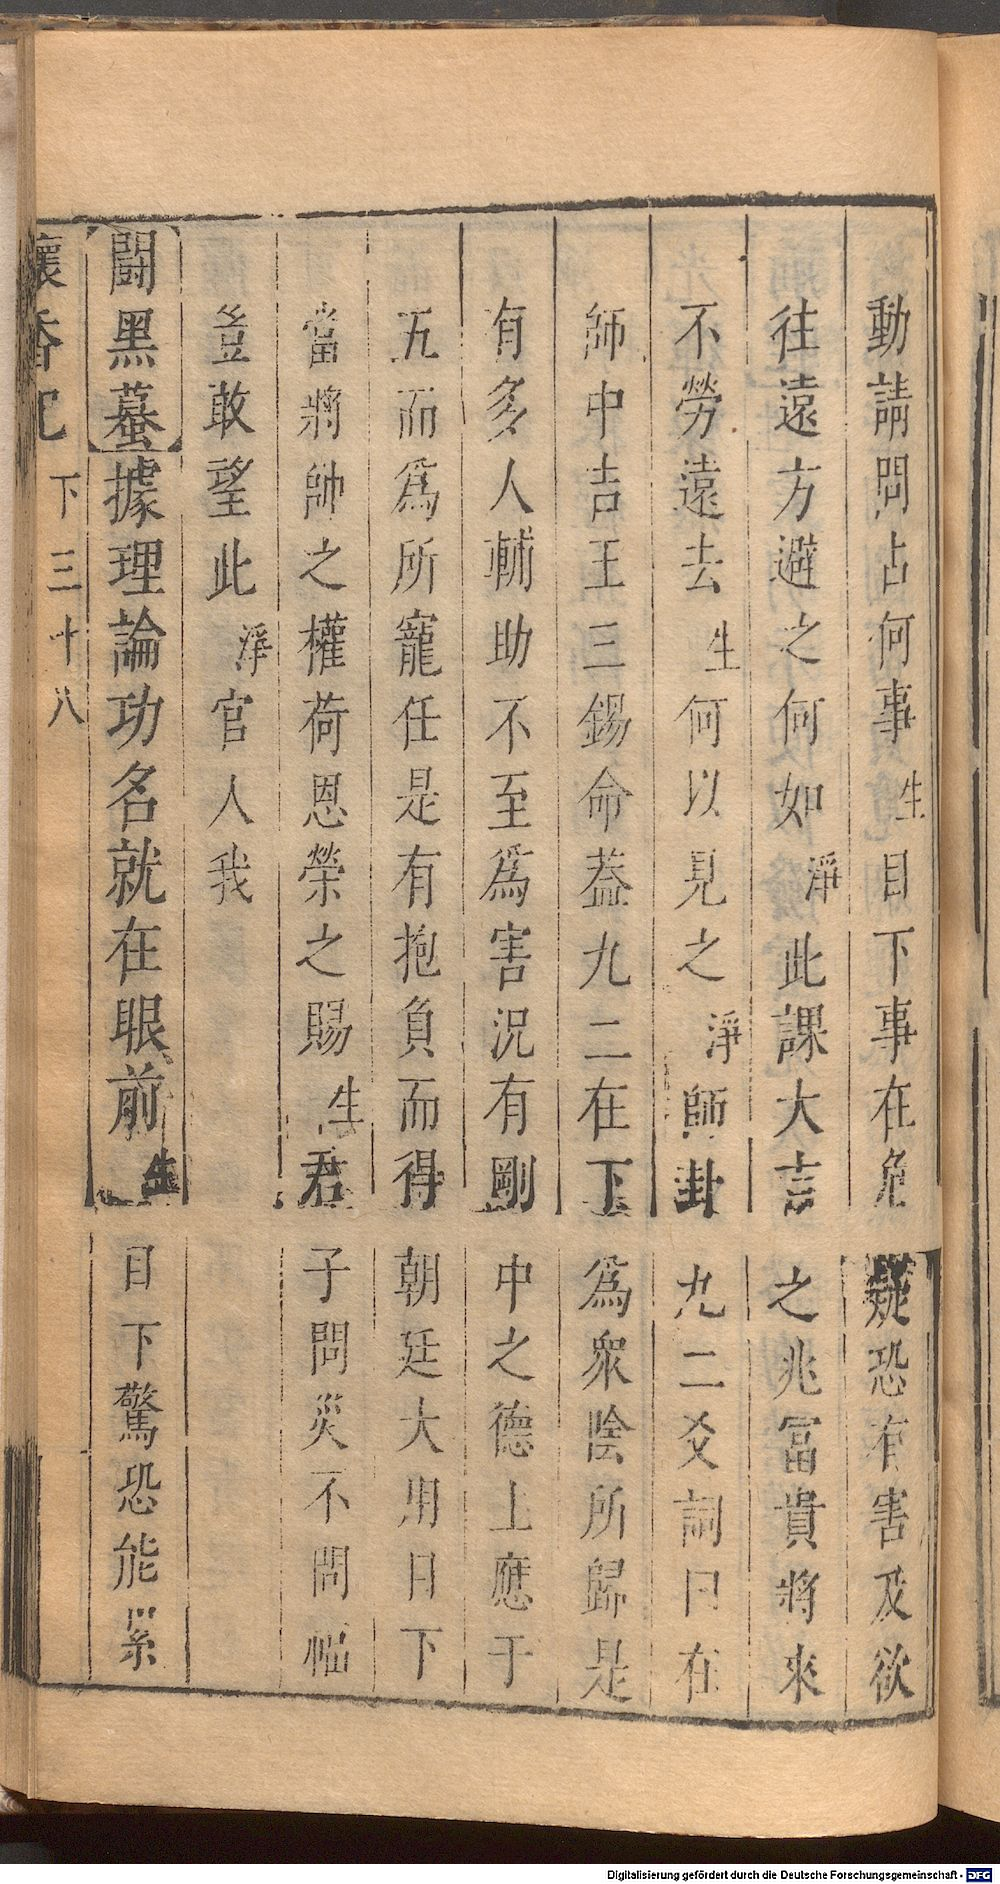 動請問占何事生目下事在危疑恐有害及欲
往遠方避之何如淨此課大吉之兆冨貴將來
不勞遠去生何以見之淨師卦九二爻詞曰在
師中吉王三錫命葢九二在下爲衆陰所歸是
有多人輔助不至爲害況有剛中之德上應于
五而爲所寵任是有抱負而得朝廷大用日下
當將帥之權荷恩榮之賜生君子問災不問福
豈敢望此淨官人我
鬪黑蟇據理論功名就在眼前生目下驚恐能累
懷香記 下 三十八
Digitalisierung gefördert durch die Deutsche Forschungsgemeinschaft - DFG